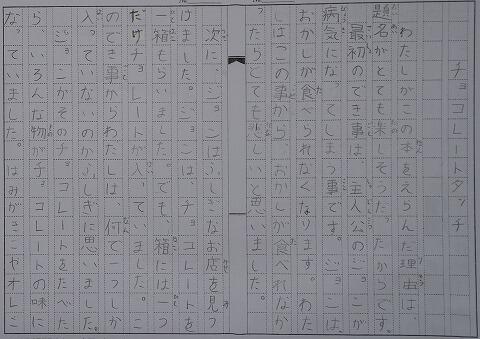 チョコレートタッチ
わたしがこの本をえらんだ理由は、
題名がとても楽しそうだったからです。
最初のでき事は、主人公のジョンが
病気になってしまう事です。ジョンは、
おかしが食べられなくなります。わた
しはこの事から、おかしが食べれなか
ったらとても悲しいと思いました。
次に、ジョンはふしぎなお店を見つ
けました。ジョンは、チョコレートを
一箱もらいました。でも、箱には一つ
だけチョコレートが入っていました。こ
のでき事からわたしは、何で一つしか
入っていないのかふしぎに思いました。
ジョンがそのチョコレートをたべた
ら、いろんな物がチョコレートの味に
なっていました。はみがきこやオレン